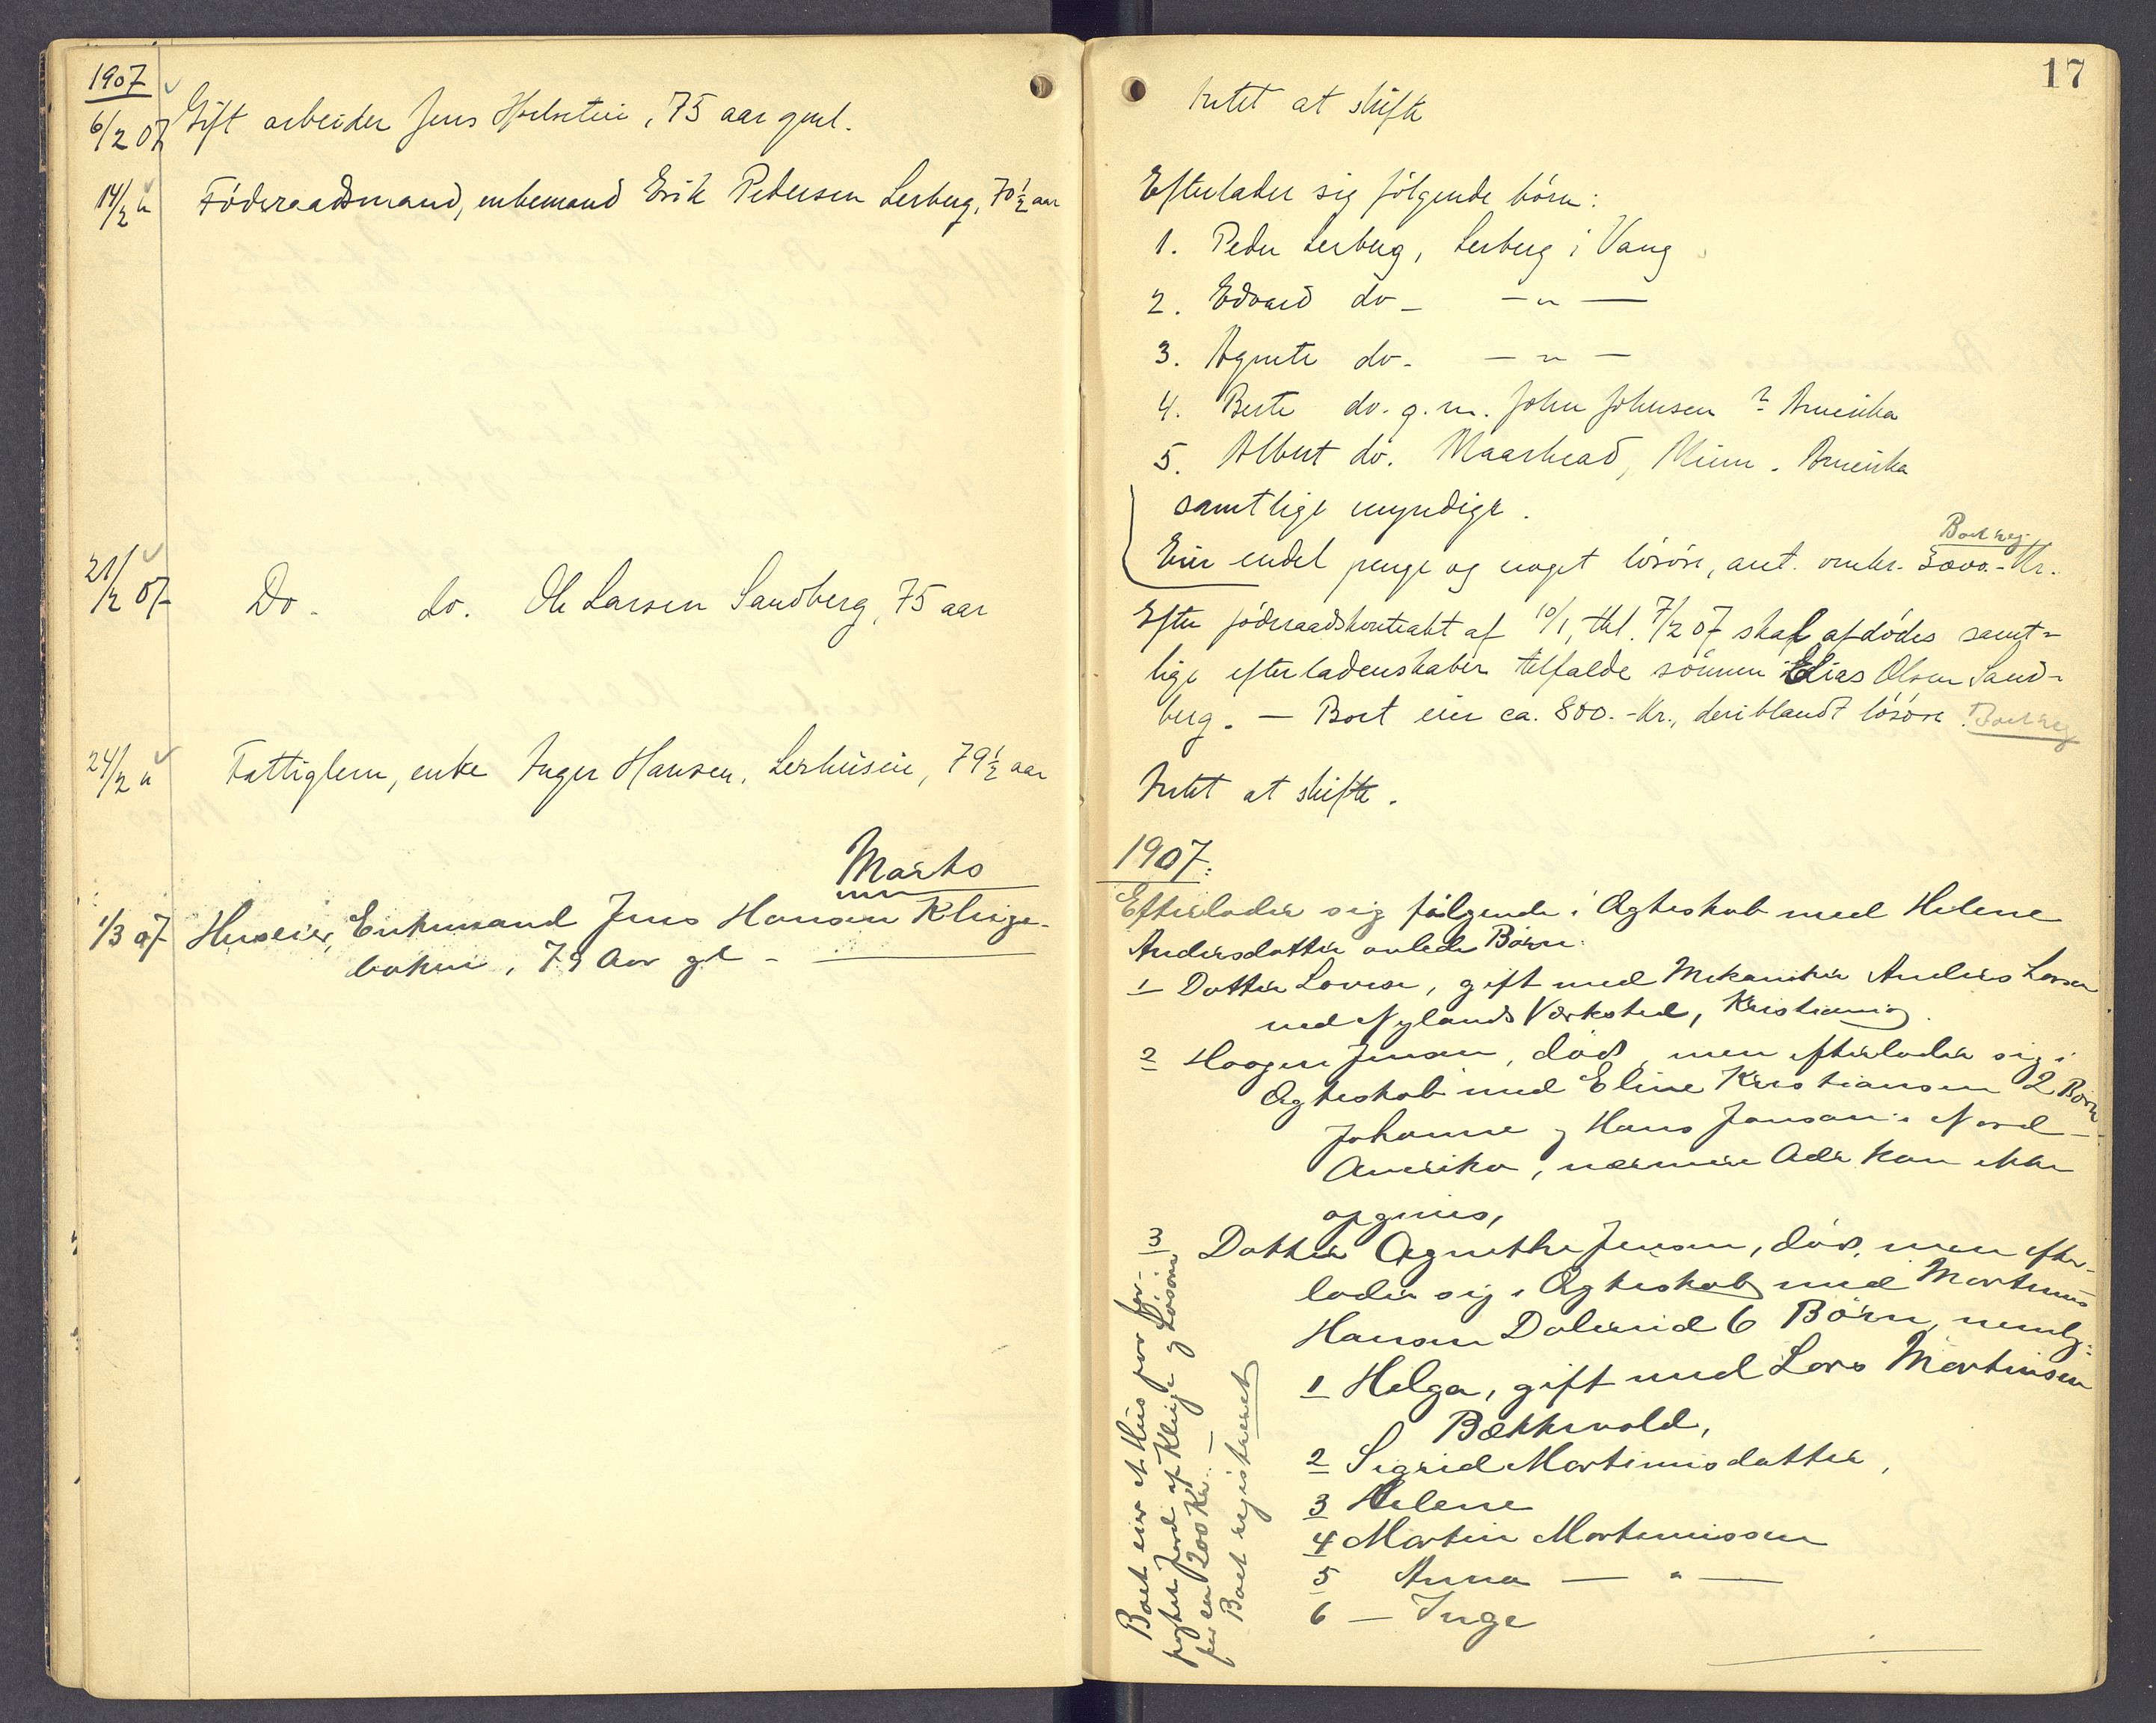 1907
6/2 07 Gift arbeider Jens Holstein, 75 aar gml.
14/2 " Føderaadsmand, enkemand Erik Pedersen Lerberg, 70½ aar
21/2 07 Do. do. Ole Larsen Sandberg, 75 aar
24/2 " Fattiglem, enke Inger Hansen, Lerhusein, 79½ aar
Marts
1/3 07 Huseier, Enkemand Jens Hansen Klinge-
baken, 79 Aar gl -
17
Intet at skifte
Efterlader sig følgende børn:
1. Peder Lerberg, Lerberg i Vang
2. Edvard do - - " -
3. Agnete do - - " -
4. Berte do. g. m. John Johnsen ? Amerika
5. Albert do. Maarhead, Minn. Amerika
samtlige myndige.
Boet reg.
Eier endel penge og noget løsøre, ant. omkr. 3000.- Kr.
Efter føderaadskontrakt af 10/1, thl. 7/2 07 skal afdødes samt-
lige efterladenskaber tilfalde sønnen Elias Olsen Sand-
berg. - Boet eier ca. 800.- Kr., deriblandt løsøre. Boet reg
Intet at skifte.
1907:
Efterlader sig følgende i Ægteskab med Helene
Andersdatter avlede Børn:
1 Datter Lovise, gift med Mekaniker Anders Larsen
ved Nylands Værksted, Kristiania.
2 Haagen Jensen, død, men efterlader sig i
Ægteskab med Eline Kristiansen 2 Børn
Johanne og Hans Jensen i Nord-
Amerika, nærmere Adr kan ikke
opgives,
3 Datter Agnethe Jensen, død, men efter-
lader sig i Ægteskab med Martinus
Hansen Dalerud 6 Børn, nemlg:
1 Helga, gift med Lars Martinsen
Bækkevold,
2 Sigrid Martinusdatter,
3 Helene
4 Martin Martinussen
5 Anna - " -
6 - Inge
Boet eier et Hus paa for-
pagtet Jord af Klinge og Løsøre
for ca 200 Kr. -
Boet registreret